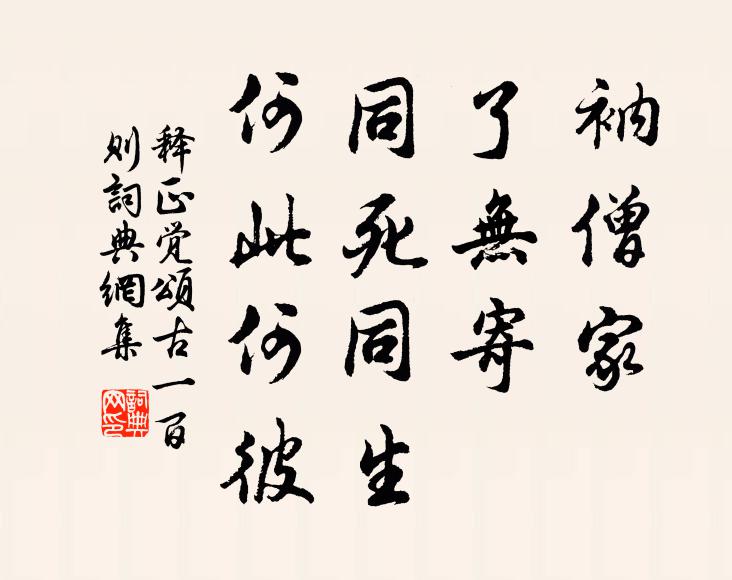 衲僧家
了無寄
同死同生
何此何彼
释正觉頌古一百
则詞典網集
詞典网印